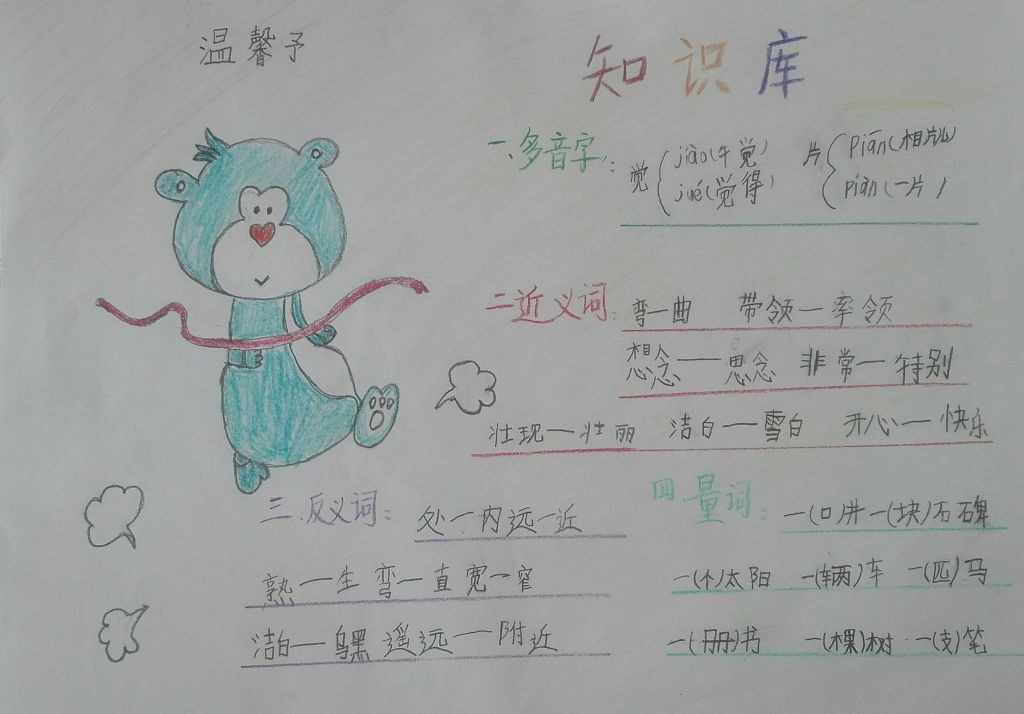 温馨予
知识库
一、多音字: 觉 jiào(午觉) jué(觉得) 片 piān(相片儿) piàn(一片)
二近义词: 弯一曲 带领一率领
想念——思念 非常一特别
壮现一壮丽 洁白——雪白 开心一快乐
三、反义词: 处一内 远一近
熟一生 弯一直 宽一窄
洁白——乌黑 遥远——附近
四、量词: 一(口)井 一(块)石碑
一(个)太阳 一(辆)车 一(匹)马
一(册)书 一(棵)树 一(支)笔